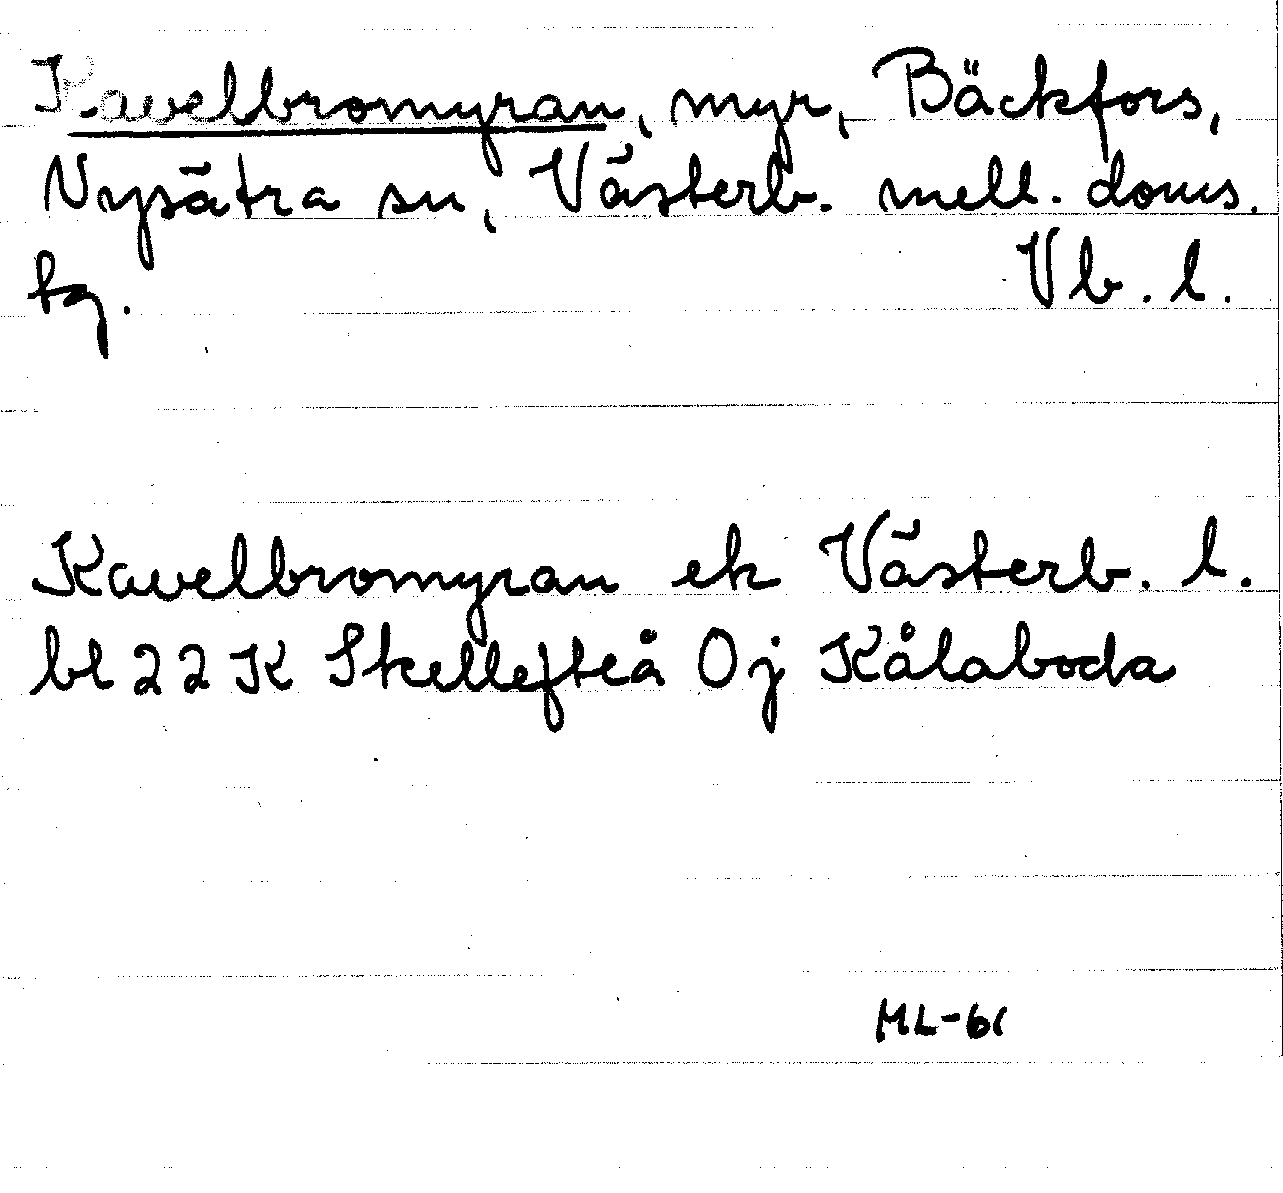 Kavelbromyran, myr, Bäckfors,
Nysätra sn, Västerb. mell. doms.
tg. Vb. l.
Kavelbromyran ek Västerb. l.
bl 22 K Skellefteå Oj Kålaboda
ML-61